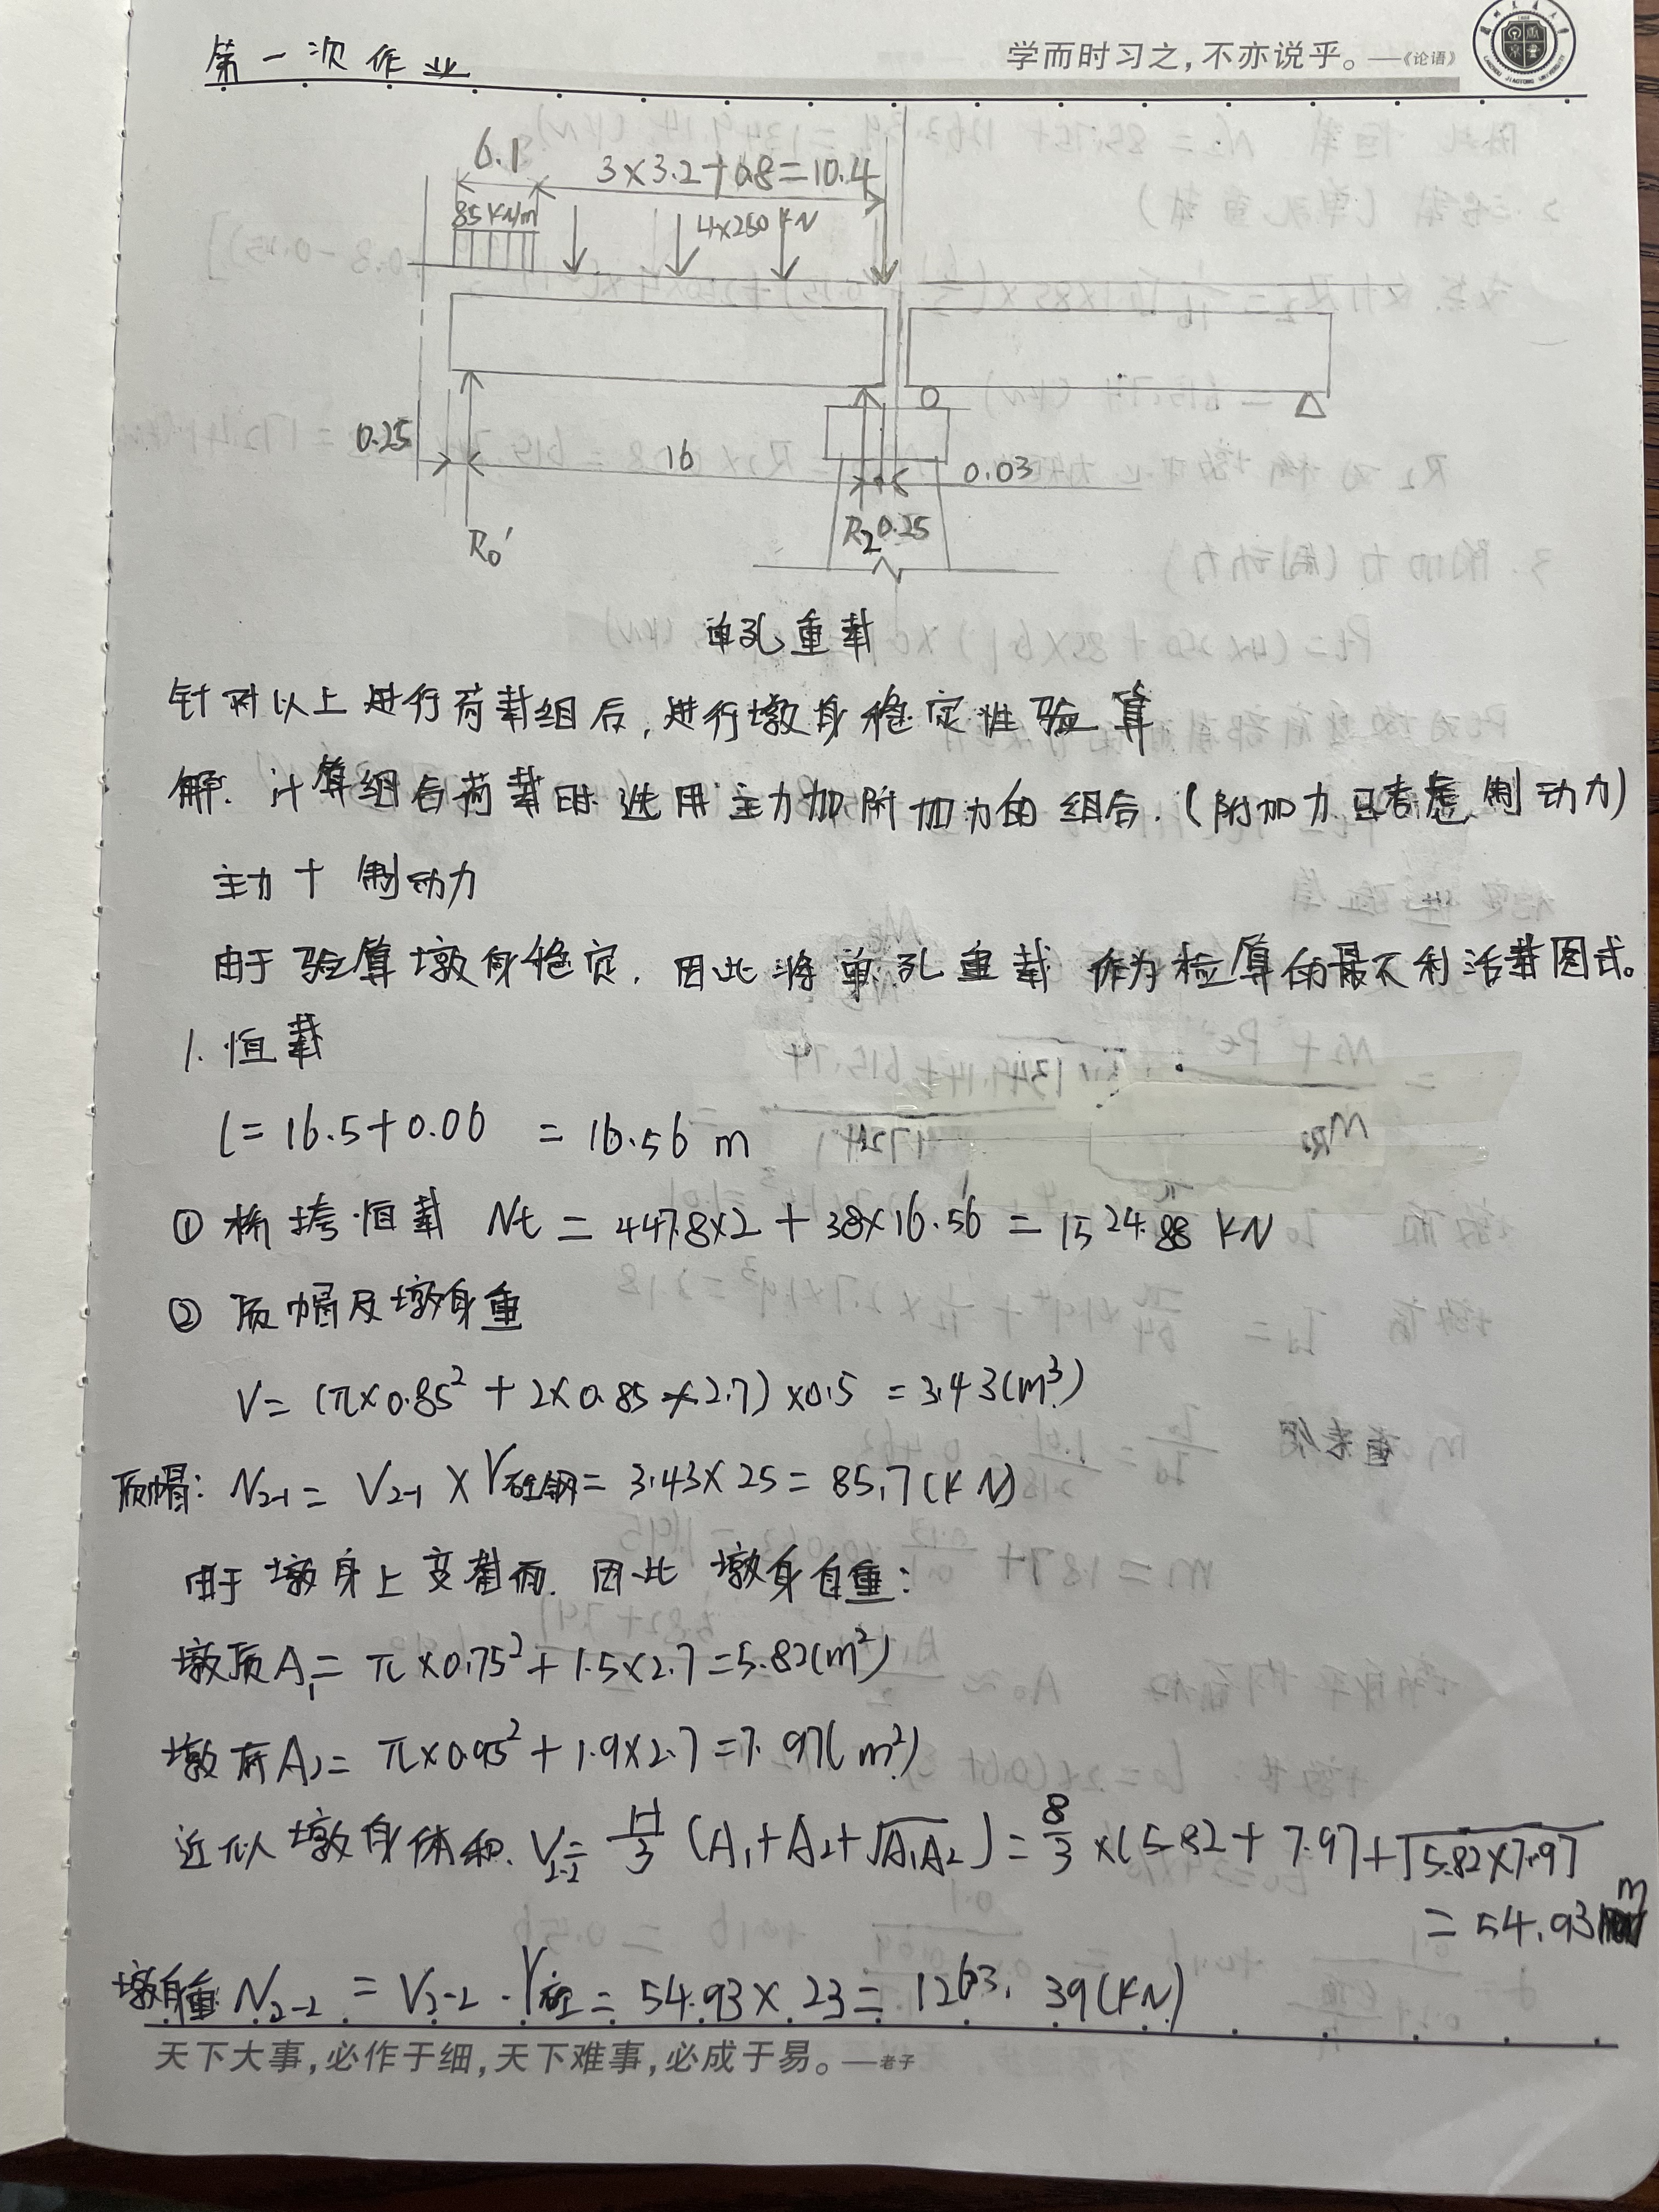 第一次作业
学而时习之,不亦说乎。——《论语》
6.1
3×3.2+0.8=10.4
85KN/m
4×250KN
0.25
16
0.03
R₀′
R₂
0.25
单孔重载
针对以上进行荷载组合,进行墩身稳定性验算
解. 计算组合荷载时 选用主力加附加力的组合.(附加力只考虑制动力)
主力+制动力
由于验算墩身稳定,因此将单孔重载作为检算的最不利活载图式。
1.恒载
l=16.5+0.06 =16.56 m
① 桥跨恒载 Nt = 447.8×2 + 38×16.56 = 1524.88 KN
② 顶帽及墩身重
V= (π×0.85² + 2×0.85×2.7)×0.5 =3.43(m³)
顶帽: N₂₋₁= V₂₋₁ × γ砼钢= 3.43×25=85.7(KN)
由于墩身上变截面.因此墩身自重:
墩顶A₁= π×0.75²+1.5×2.7=5.82(m²)
墩底A₂= π×0.95²+1.9×2.7=7.97(m²)
近似墩身体积.V₂₋₂= H/3 (A₁+A₂+√A₁A₂)= 8/3 ×(5.82+7.97+√5.82×7.97
= 54.93 m
墩身重 N₂₋₂ = V₂₋₂·γ砼= 54.93×23=1263.39(KN)
天下大事,必作于细,天下难事,必成于易。——老子